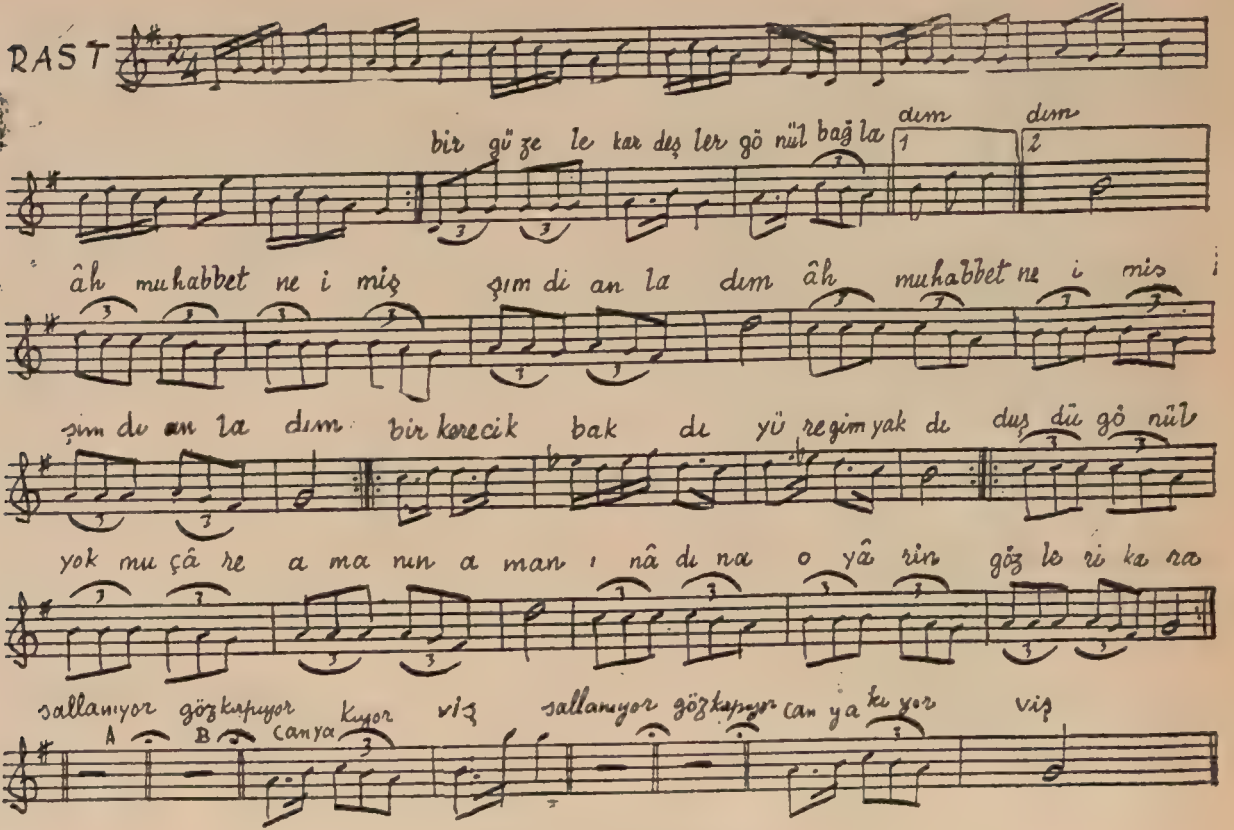 RAST 2/4
dım dım
bir gü ze le kar deş ler gö nül bağ la 1 2
3 3 3
âh muhabbet ne i miş şım di an la dım âh muhabbet ne i mis
3 3 3 3 3 3 3 3 3 3
şım di an la dım bir kerecik bak dı yü regim yak dı düş dü gö nül
3 3 3 3
yok mu çâ re a ma nın a man ı nâ dı na o yâ rin göz le ri ka ra
3 3 3 3 3 3 3 3 3 3
sallanıyor gözkıpıyor can ya kıyor viş sallanıyor gözkıpıyor can ya kı yor viş
A B 3 3